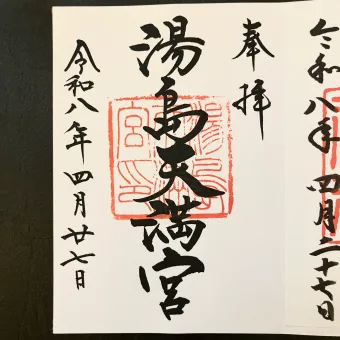 奉拝
湯島天満宮
令和八年四月廿七日
令和八年四月二十七日